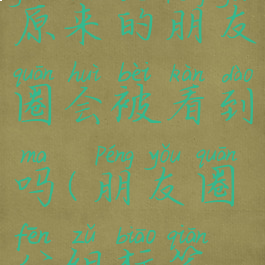 原来的朋友
quān huì bèi kàn dào
圈会被看到
ma péng yǒu quān
吗(朋友圈
fēn zǔ biāo qiān
分组标签